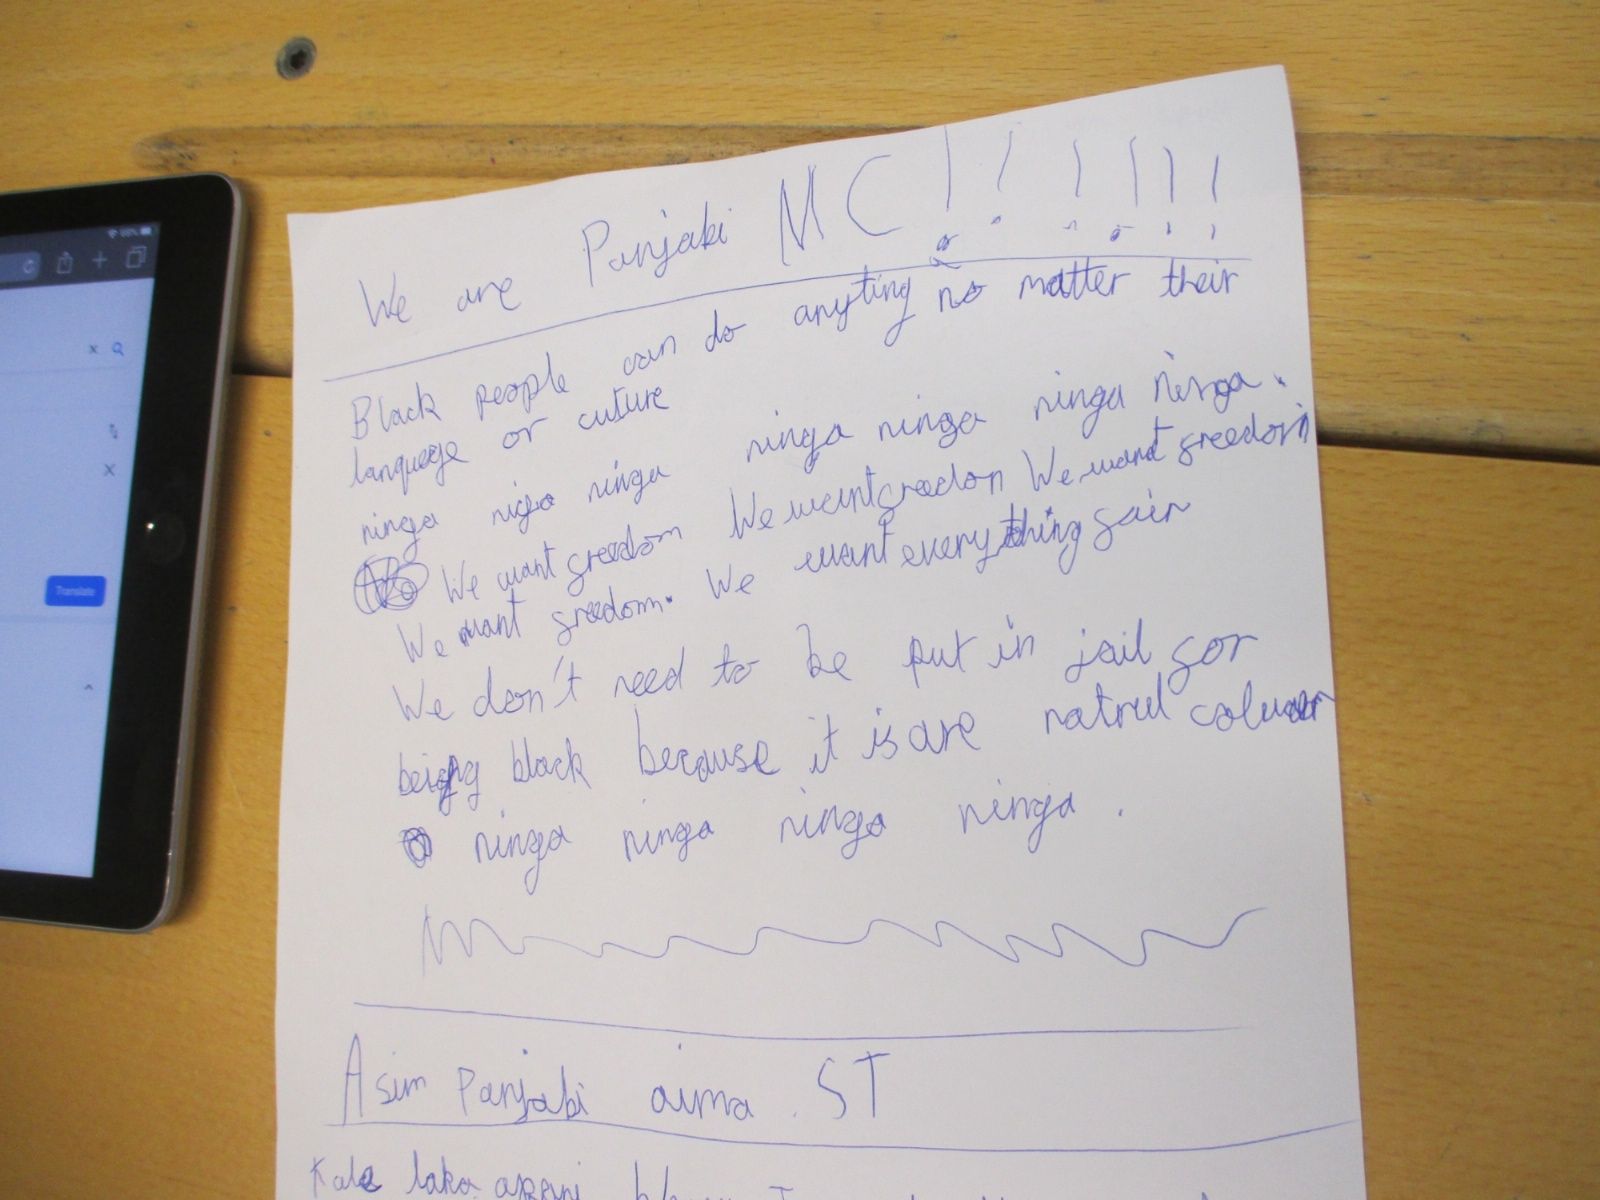 We are Panjabi MC!!!!!!
Black people can do anyting no matter their
language or cuture
ninga niga ninga ninga ninga ninga ninga.
We want freedom We want freedon We want freedom
We want freedom. We want everything fair
We don't need to be put in jail for
being black because it is are natrul colour
ninga ninga ninga ninga.
Asim Panjabi aima ST
Kale laka
Translate